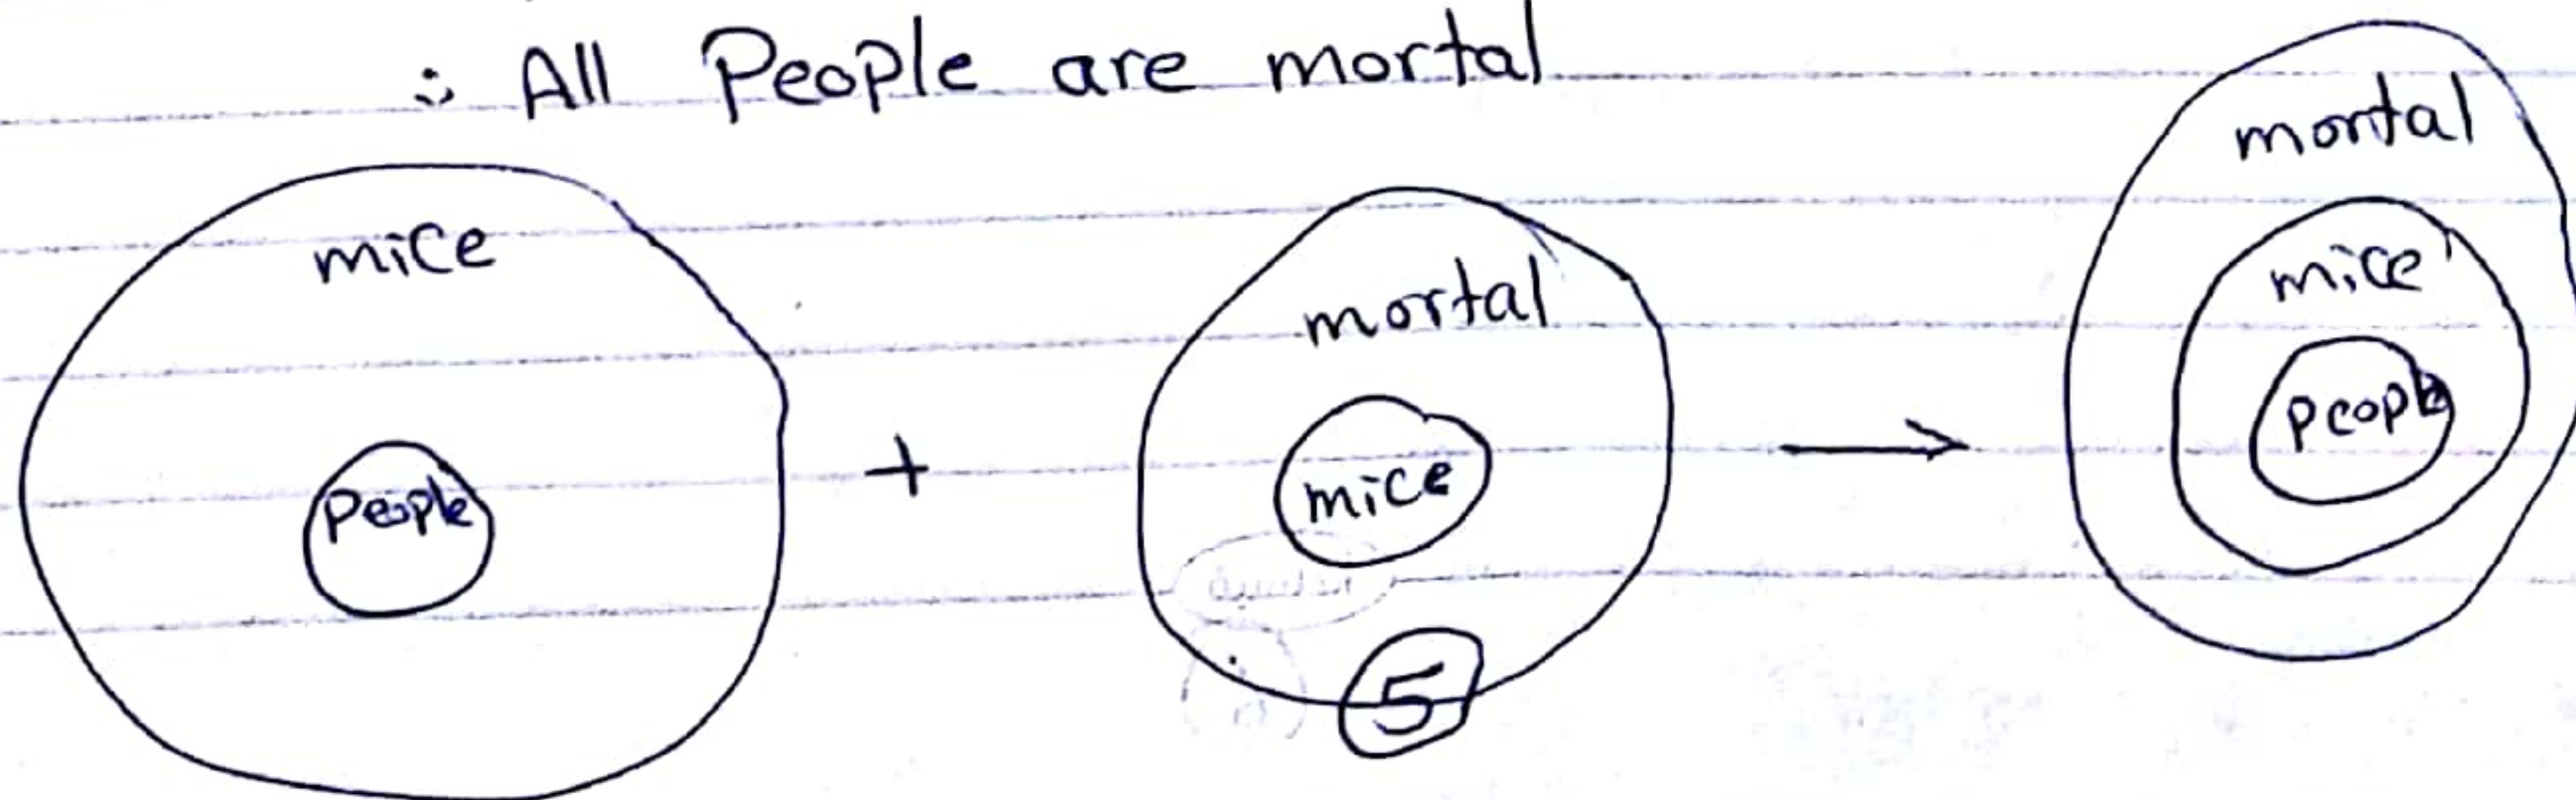 ∴ All People are mortal
mice
People
+
mortal
mice
5
→
mortal
mice
people